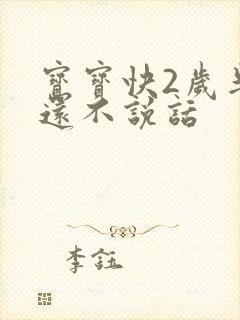 寶寶快2歲半
還不說話
李鈺